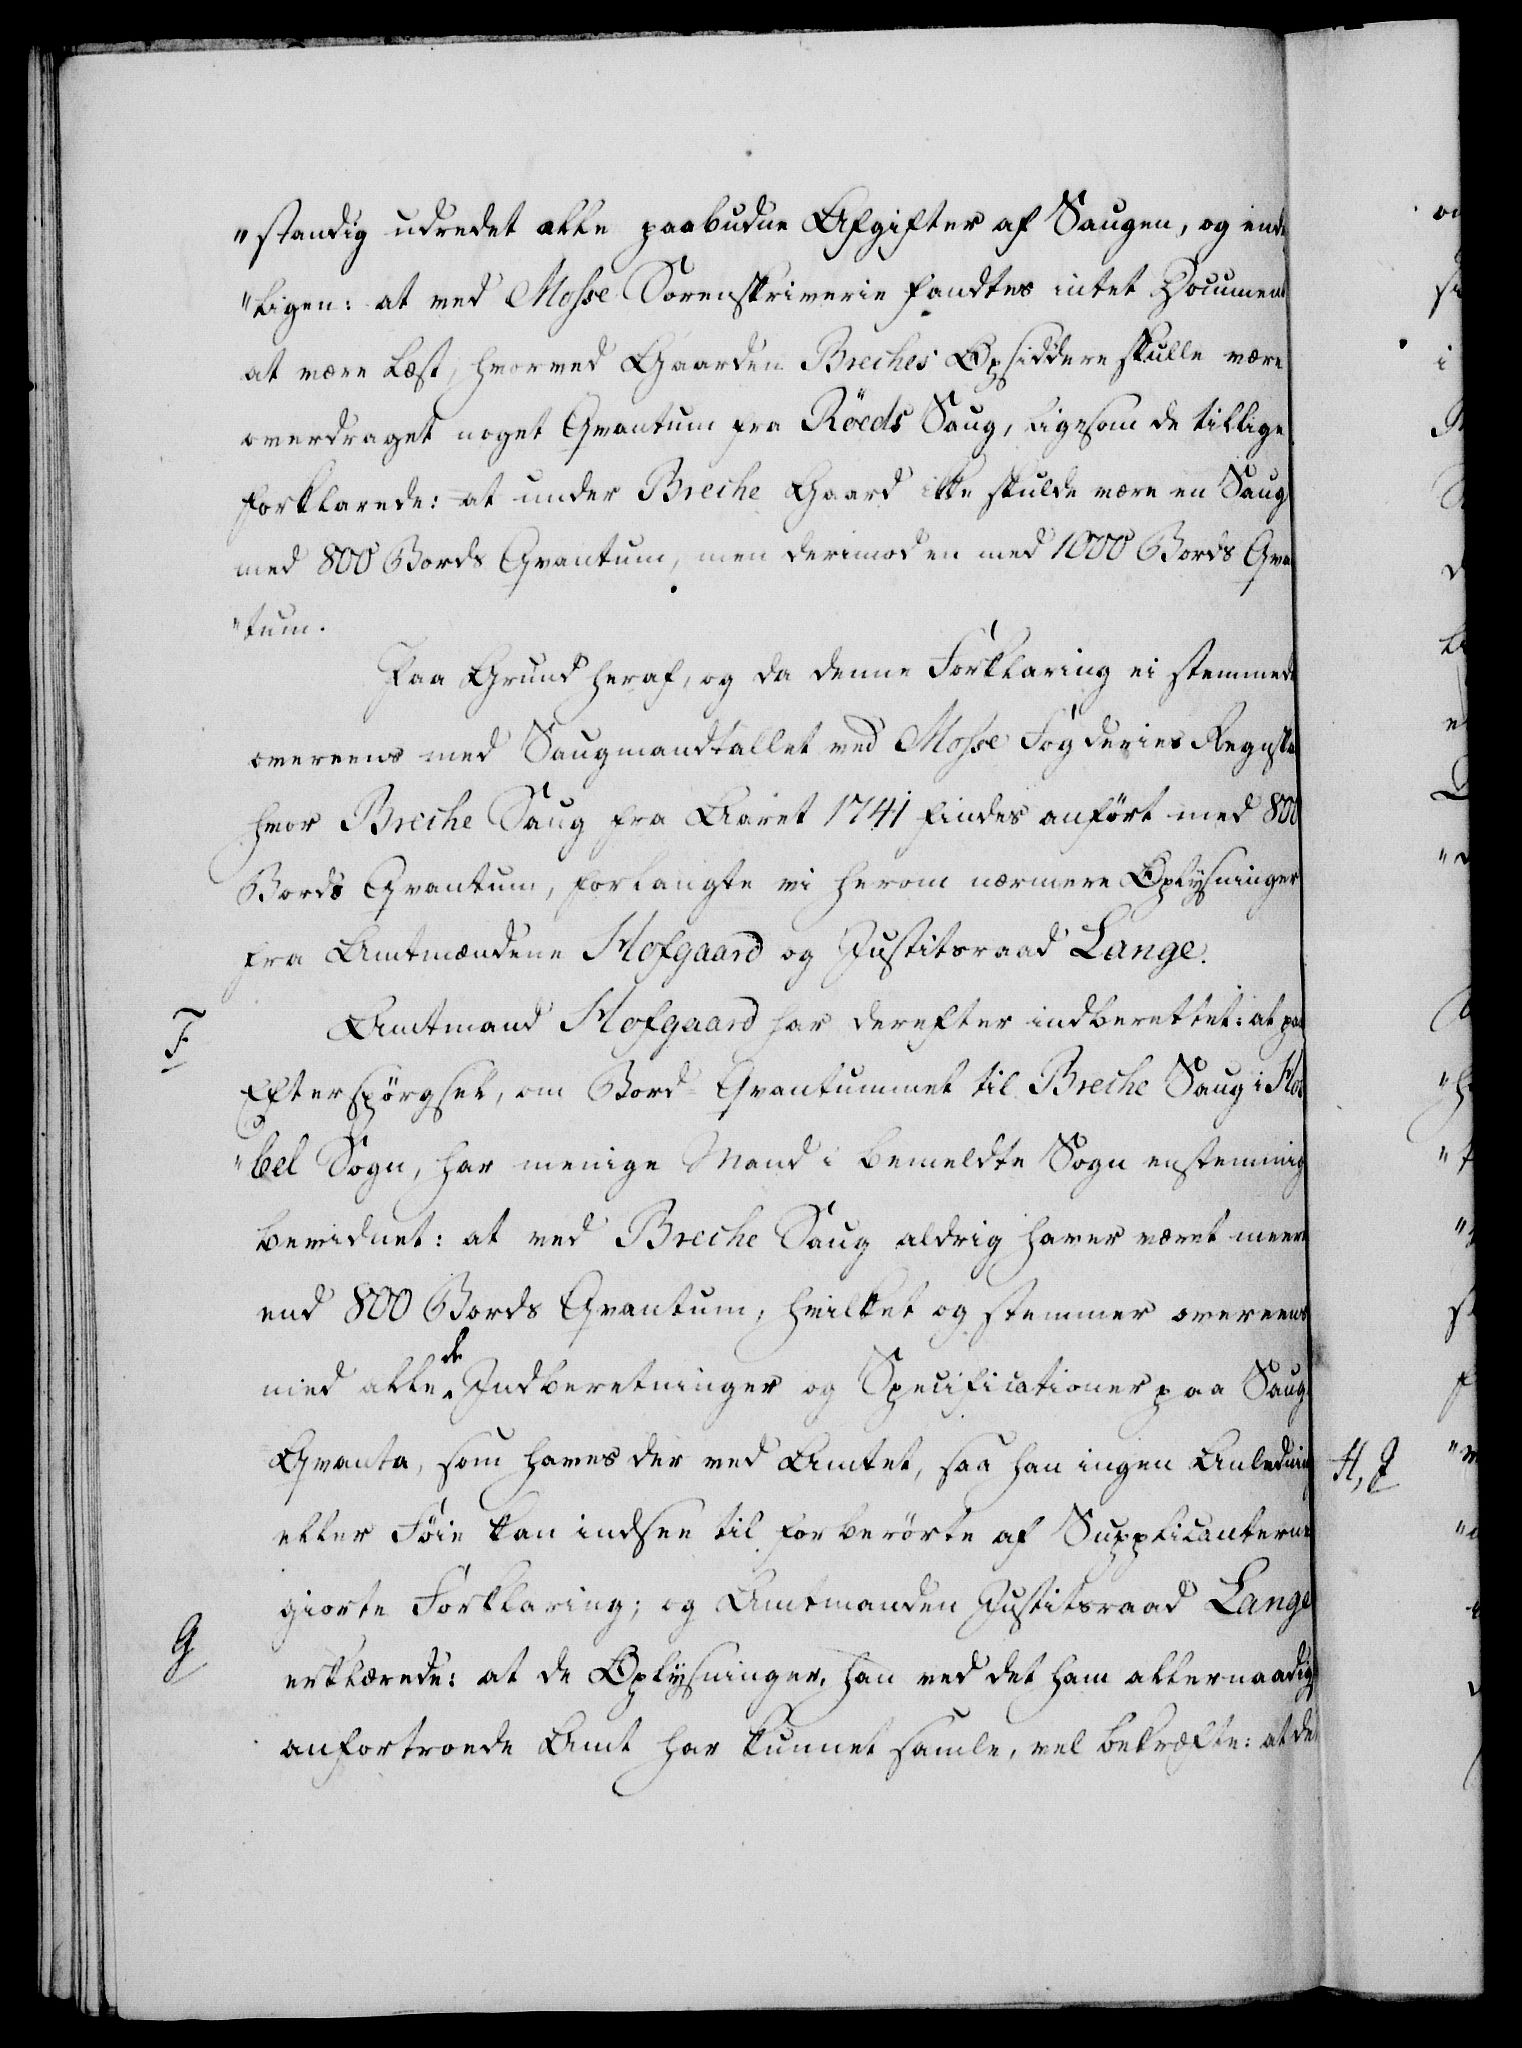 "standig udredet alle paabudne Afgifter af Saugen, og ende
"ligen: at ved Mosse Sorenskriverie fandtes intet Document
at være læst, hvorved Gaarden Breches Opsiddere skulle være
overdraget noget Qvantum fra Röeds Saug, ligesom de tillige
forklarede: at under Breche Gaard ikke skulde være en Saug
med 800 Bords Qvantum, men derimod en med 1000 Bords Qvan
"tum.
Paa Grund heraf, og da denne Forklaring ei stemmede
overeens med Saugmandtallet ved Mosse Fogderies Regnska
hvor Breche Saug fra Aaret 1741 findes anfört med 800
Bords Qvantum, forlangte vi herom nærmere Oplysninger
fra Amtmændene Hofgaard og Justitsraad Lange.
F
Amtmand Hofgaard har derefter indberettet: at paa
Efterspörgsel, om Bord-Qvantummet til Breche Saug i Hoe
"bel Sogn, har menige Mand i bemeldte Sogn enstemmig
bevidnet: at ved Breche Saug aldrig haver været meere
end 800 Bords Qvantum, hvilket og stemmer overeens
med alle de Indberetninger og Specificationer paa Saug-
Qvanta, som haves der ved Amtet, saa han ingen Anledning
eller Föie kan indsee til forberörte af Supplicanterne
giorte Forklaring; og Amtmanden Justitsraad Lange
G
erklærede: at de Oplysninger, han ved det ham allernaadigst
anfortroede Amt har kunnet samle, vel bekræfte: at de
H, J